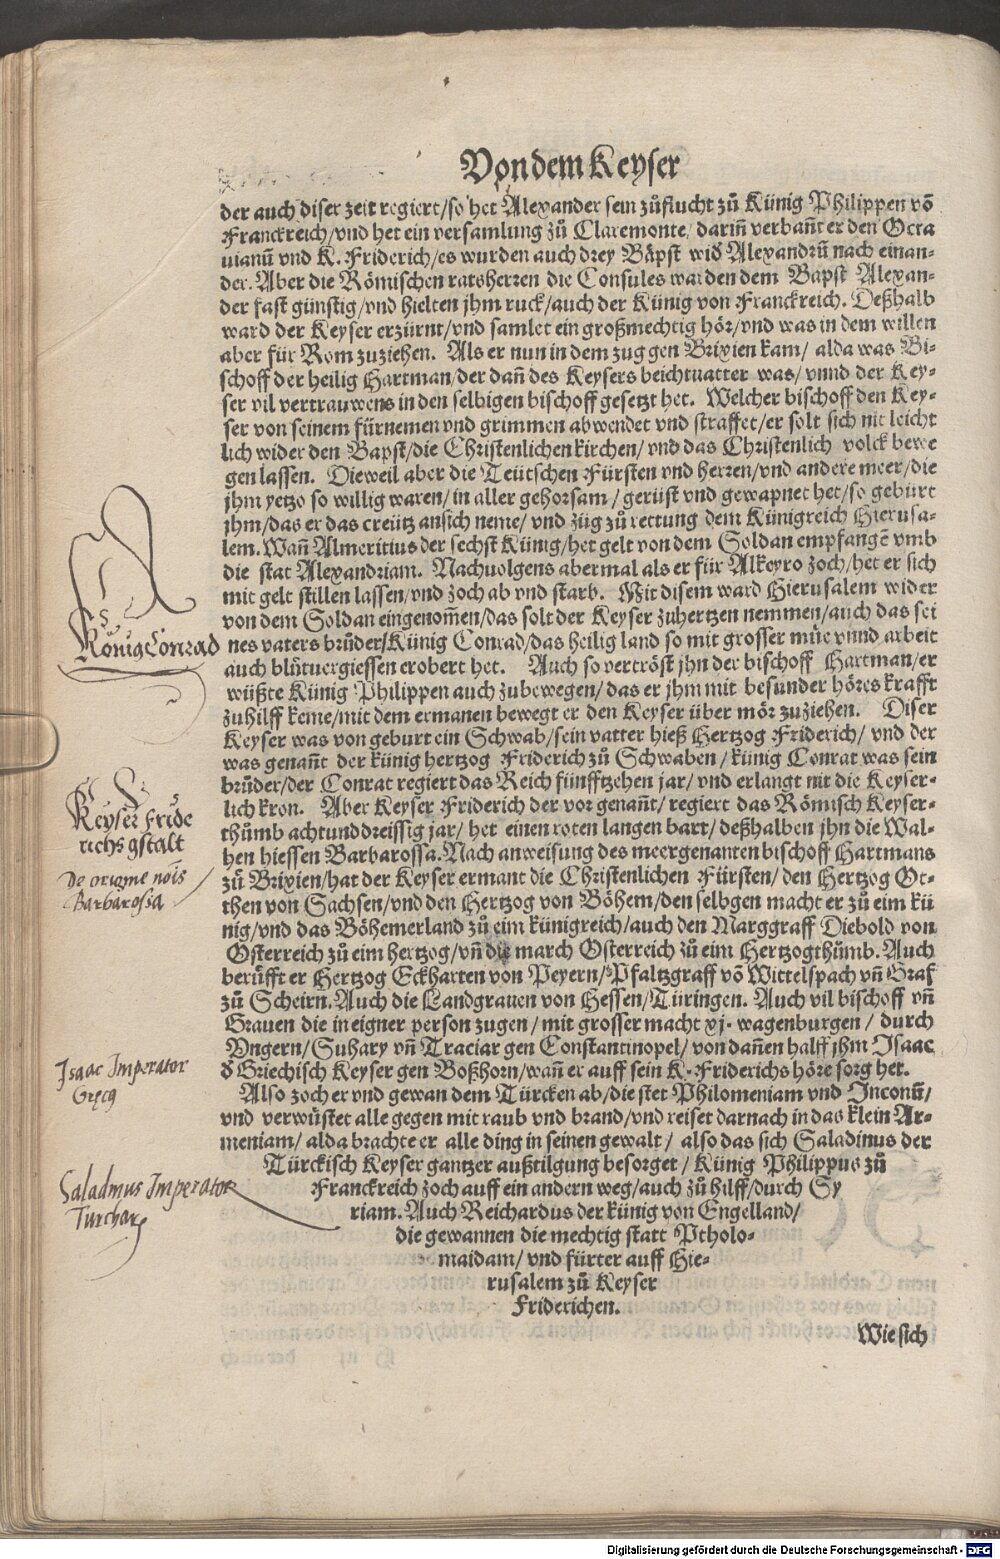 Von dem Keyser
der auch diser zeit regiert/so het Alexander sein zůflucht zů Künig Philippen võ
Franckreich/vnd het ein versamlung zů Claremonte/darin̄ verban̄t er den Octa
uianū vnd K. Friderich/es wurden auch drey Bäpst wid' Alexandrū nach einan-
der. Aber die Römischen ratsherren die Consules warden dem Bapst Alexan-
der fast günstig/vnd hielten jhm ruck/auch der Künig von Franckreich. Deßhalb
ward der Keyser erzürnt/vnd samlet ein großmechtig hör/vnd was in dem willen
aber für Rom zuziehen. Als er nun in dem zug gen Brixien kam/ alda was Bi-
schoff der heilig Hartman/der dan̄ des Keysers beichtuatter was/ vnnd der Key-
ser vil vertrauwens in den selbigen bischoff gesetzt het. Welcher bischoff den Key-
ser von seinem fürnemen vnd grimmen abwendet vnd straffet/er solt sich nit leicht
lich wider den Bapst/die Christenlichen kirchen/ vnd das Christenlich volck bewe
gen lassen. Dieweil aber die Teütschen Fürsten vnd herren/vnd andere meer/die
jhm yetzo so willig waren/in aller gehorsam/ gerüst vnd gewapnet het/so gebürt
jhm/das er das creütz an sich neme/ vnd züg zů rettung dem Künigreich Hierusa-
lem. Wan̄ Almeritius der sechst Künig/het gelt von dem Soldan empfangē vmb
die stat Alexandriam. Nachuolgens abermal als er für Alkeyro zoch/het er sich
mit gelt stillen lassen/vnd zoch ab vnd starb. Mit disem ward Hierusalem wider
von dem Soldan eingenom̄en/das solt der Keyser zuhertzen nemmen/auch das sei
nes vaters brůder/Künig Conrad/das heilig land so mit grosser müe vnnd arbeit
auch blůtuergiessen erobert het. Auch so vertröst jhn der bischoff Hartman/er
wüßte Künig Philippen auch zubewegen/ das er jhm mit besunder höres krafft
zuhilff keme/mit dem ermanen bewegt er den Keyser über mör zuziehen. Diser
Keyser was von geburt ein Schwab/sein vatter hieß Hertzog Friderich/ vnd der
was genan̄t der künig hertzog Friderich zů Schwaben/ künig Conrat was sein
brůder/der Conrat regiert das Reich fünfftzehen jar/ vnd erlangt nit die Keyser-
lich kron. Aber Keyser Friderich der vor genan̄t/ regiert das Römisch Keyser-
thůmb achtunddreissig jar/ het einen roten langen bart/ deßhalben jhn die Wal-
hen hiessen Barbarossa. Nach anweisung des meergenanten bischoff Hartmans
zů Brixien/hat der Keyser ermant die Christenlichen Fürsten/ den Hertzog Ot-
then von Sachsen/vnd den Hertzog von Böhem/den selbgen macht er zů eim kü
nig/vnd das Böhemerland zů eim künigreich/auch den Marggraff Diebold von
Osterreich zů eim hertzog/vn̄ die march Osterreich zů eim Hertzogthůmb. Auch
berüfft er Hertzog Eckharten von Peyern/Pfaltzgraff võ Wittelspach vn̄ Graf
zů Scheirn. Auch die Landgrauen von Hessen/Türingen. Auch vil bischoff vn̄
Grauen die in eigner person zugen/ mit grosser macht xj. wagenburgen/ durch
Vngern/Suhary vn̄ Traciar gen Constantinopel/ von dan̄en halff jhm Isaac
d' Griechisch Keyser gen Boßhorn/wan̄ er auff sein K. Friderichs höre sorg het.
Also zoch er vnd gewan dem Türcken ab/die stet Philomeniam vnd Inconū/
vnd verwüstet alle gegen mit raub vnd brand/vnd reiset darnach in das klein Ar-
meniam/ alda brachte er alle ding in seinen gewalt/ also das sich Saladinus der
Türckisch Keyser gantzer außtilgung besorget/ Künig Philippus zů
Franckreich zoch auff ein andern weg/auch zů hilff/durch Sy
riam. Auch Reichardus der künig von Engelland/
die gewannen die mechtig statt Ptholo-
maidam/ vnd fürter auff Hie-
rusalem zů Keyser
Friderichen.
Wie sich
König Conrad
Keyser Fride
richs gstalt
De origine nois
Barbarossa
Isaac Imperator
Grecq
Saladinus Imperator
Turchar
Digitalisierung gefördert durch die Deutsche Forschungsgemeinschaft - DFG